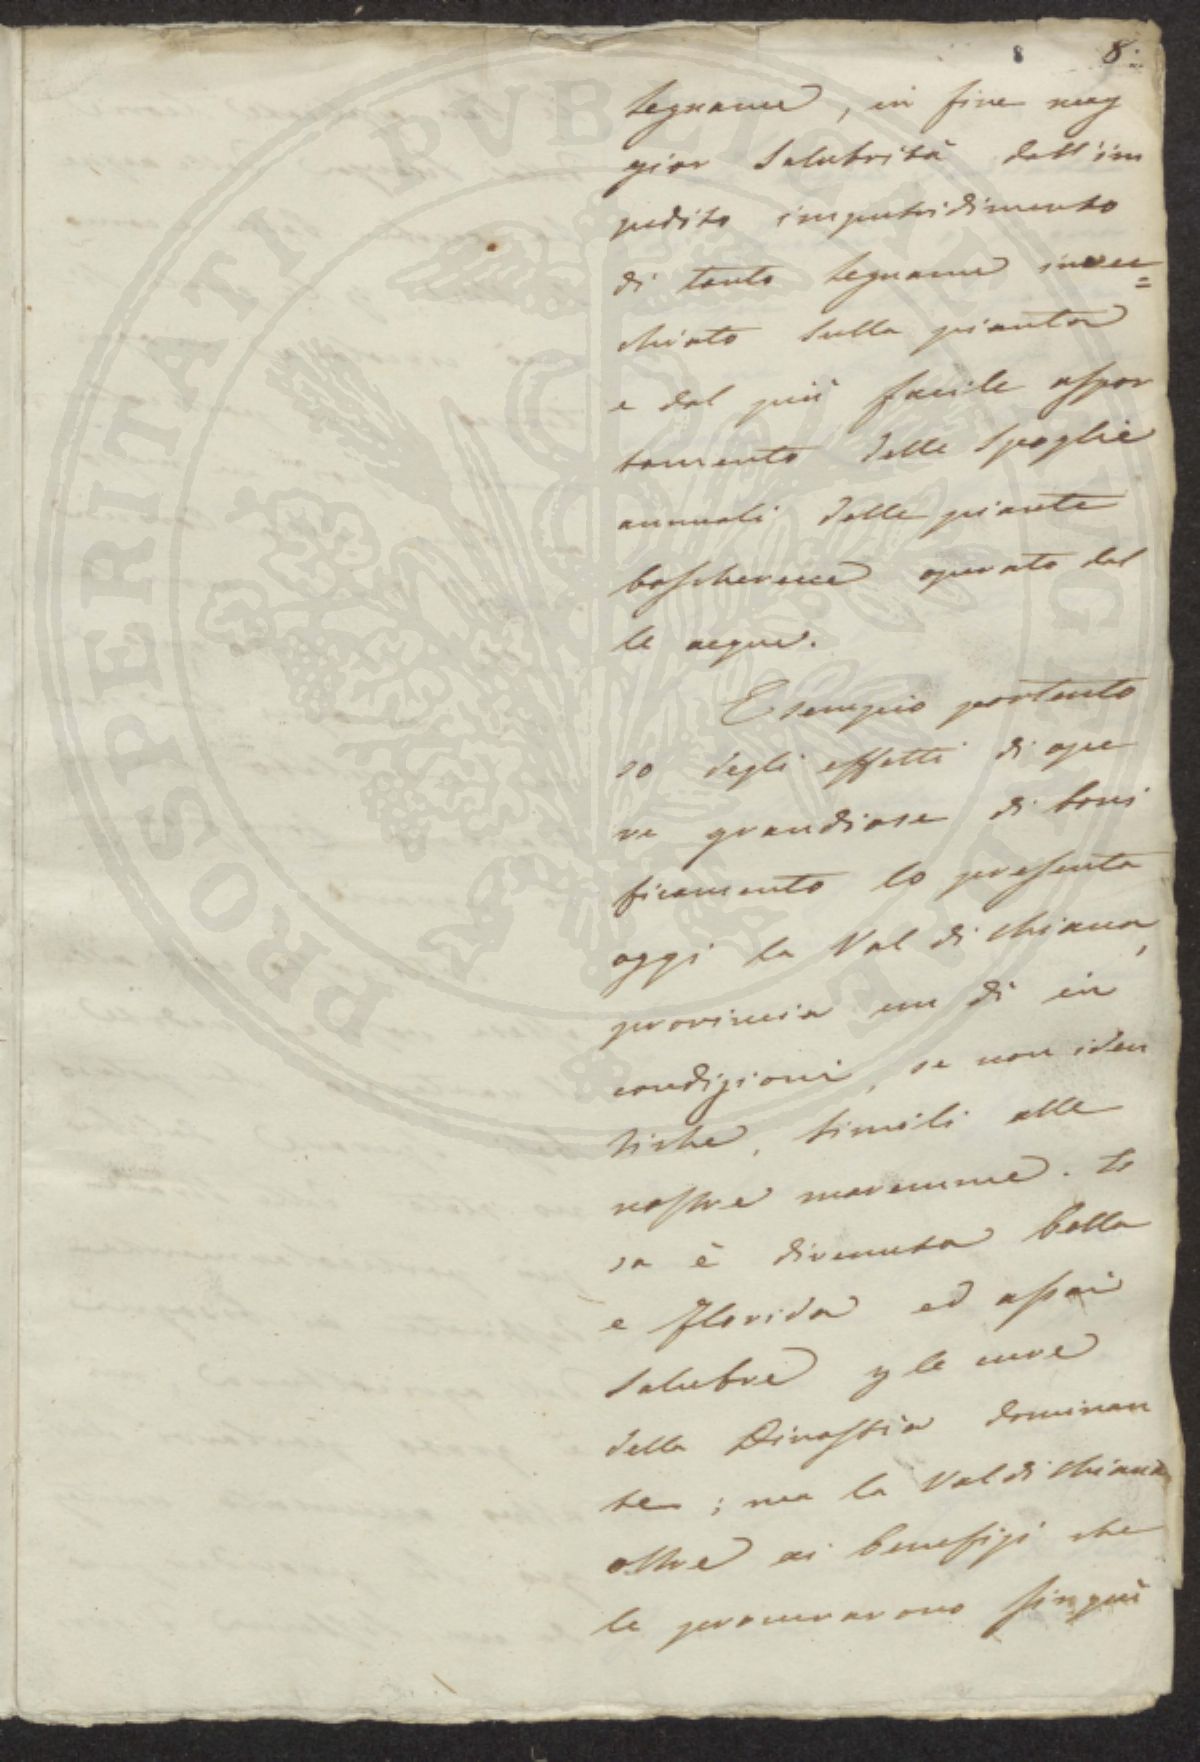 8 8.
legname, in fine mag
gior Salubrità dall'im
pedito imputridimento
di tanto legname invec=
chiato sulla pianta
e dal più facile aspor
tamento delle Spoglie
annuali delle piante
boscherecce operato dal
le acque.
Esempio portento
so degli effetti di ope
re grandiose di boni
ficamento lo presenta
oggi la Val di Chiana,
provincia un dì in
condizioni, se non iden
tiche, simili alle
nostre maremme. Es
sa è divenuta bella
e florida ed assai
salubre p le cure
della Dinastia dominan
te; ma la Val di Chiana
oltre ai benefizi che
le procurarono fin quì
PROSPERITATI PVBLICAE AVGENDAE